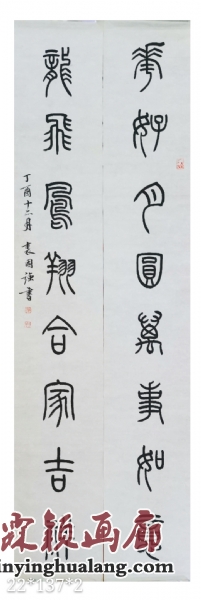 華好月圓萬事如意
龍飛鳳翔合家吉祥
丁酉十二月 袁国強書
霖颖画廊
linyinghualang.com
22*137*2